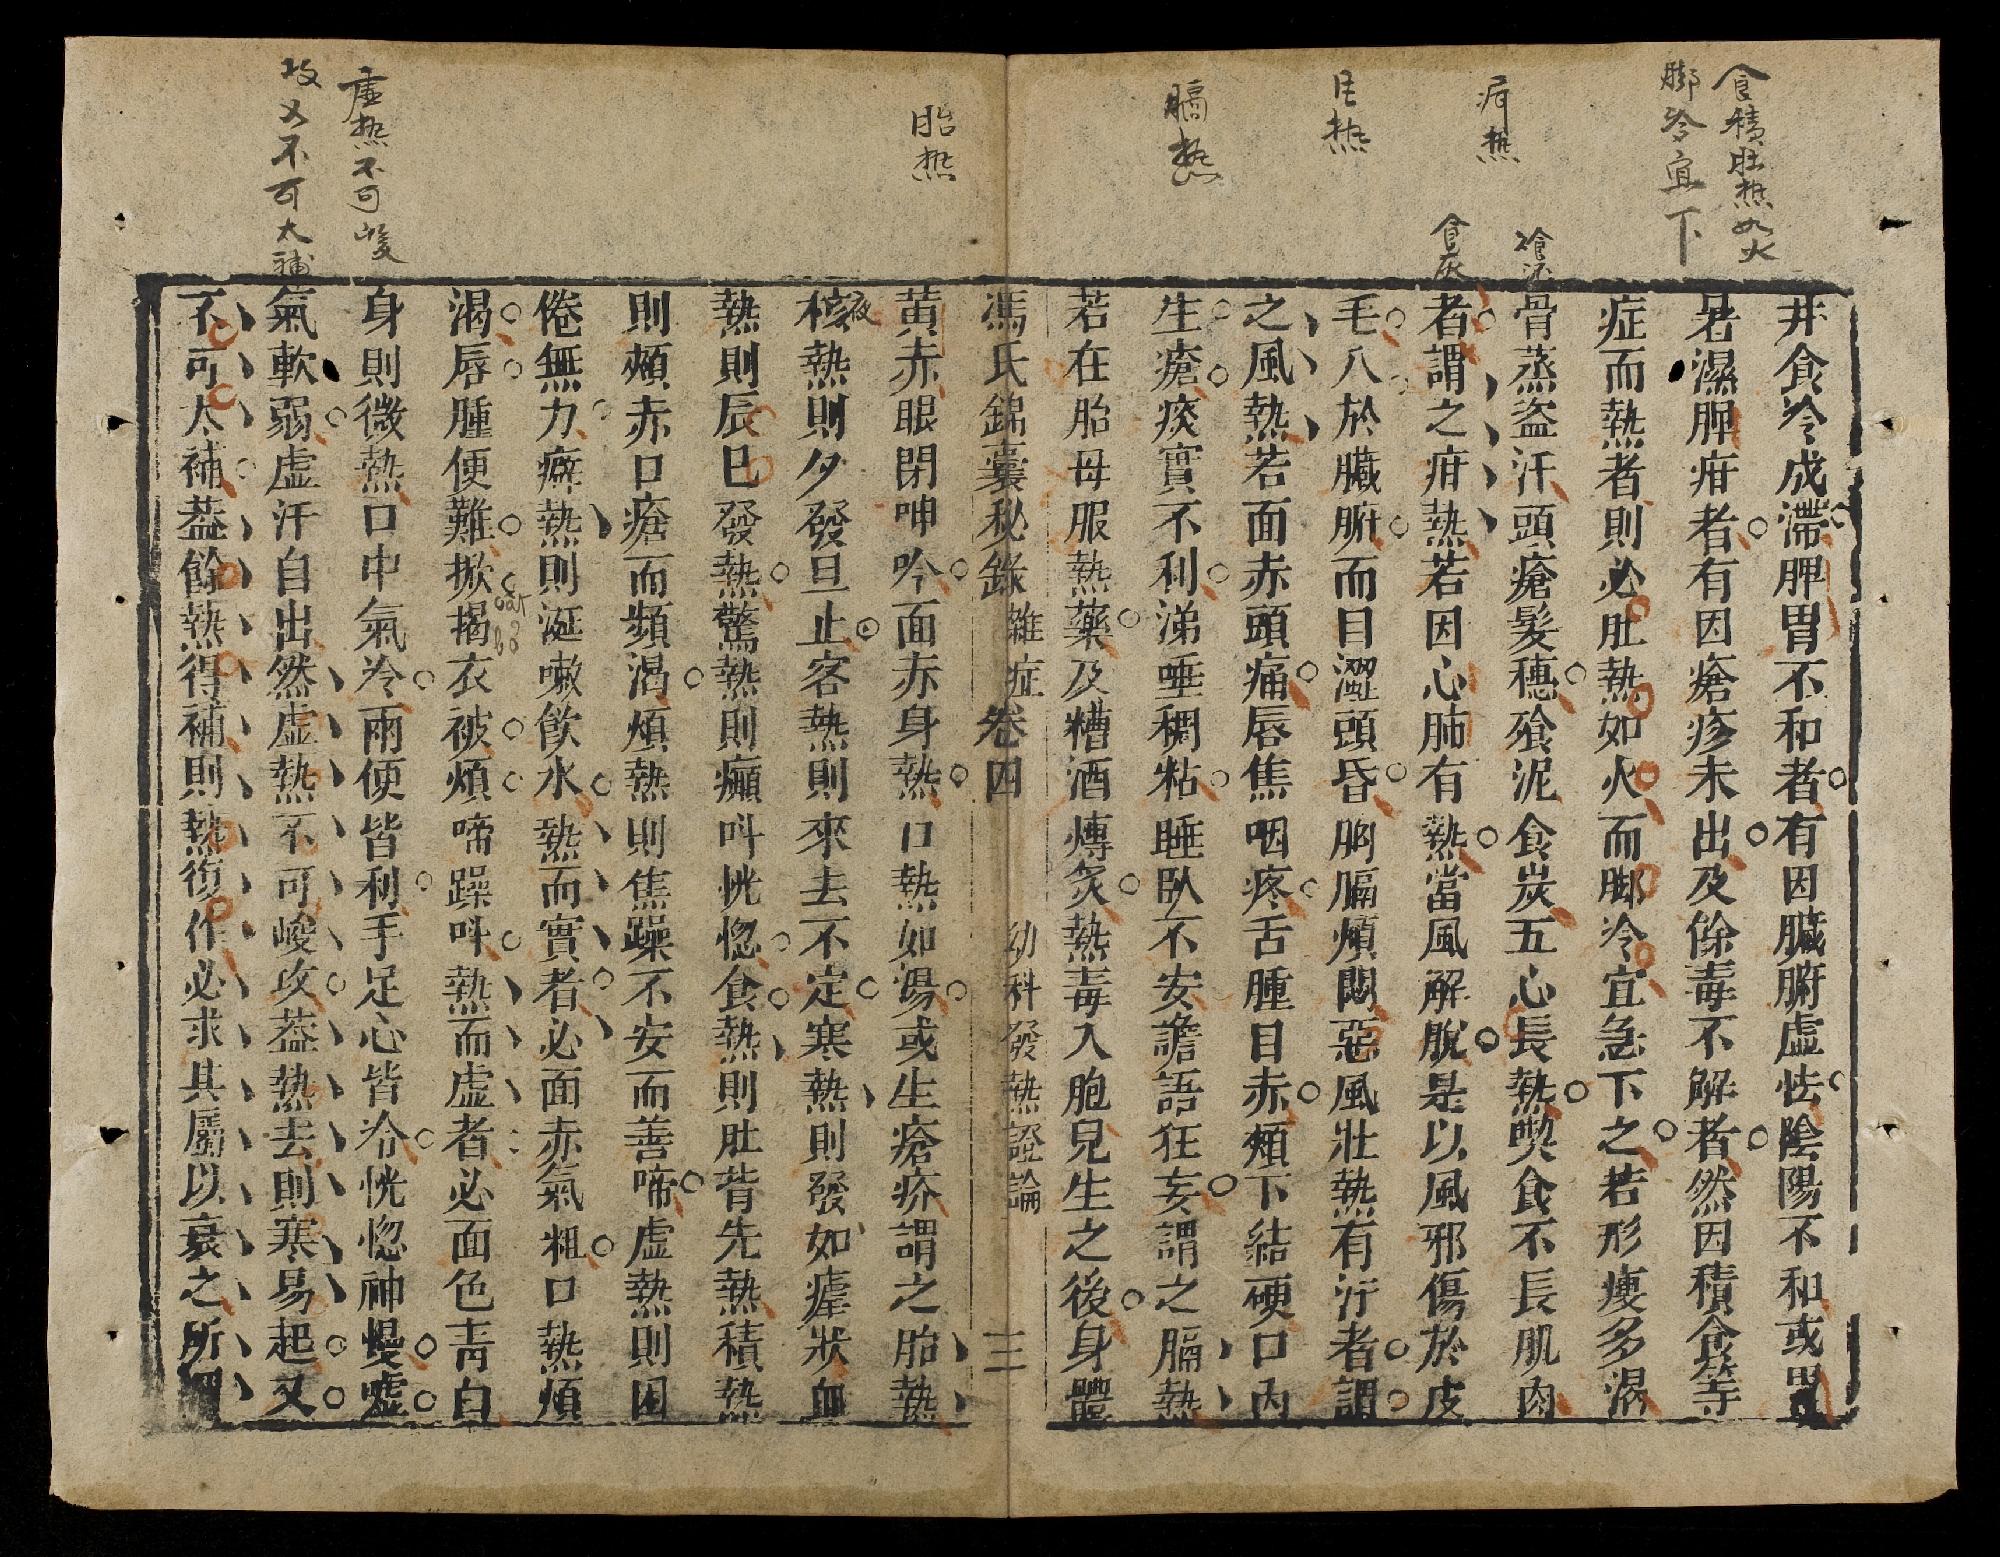 食積肚热如火
脚冷宜下
疳热
目热
膈热
胎热
虗热不可峻
攻又不可大補
食炭
井食冷成滯脾胃不和者有因臟腑虛怯陰陽不和或畏
暑濕脾疳者有因瘡疹未出及餘毒不解者然因積食等
症而熱者則必肚熱如火而脚冷宜急下之若形瘦多渴
骨蒸盗汗頭瘡髮穗飱泥食炭五心長熱喫食不長肌肉
者謂之疳熱若因心肺有熱當風解脫是以風邪傷於皮
毛入於臟腑而目澀頭昏胸膈煩悶惡風壯熱有汗者謂
之風熱若面赤頭痛唇焦咽疼舌腫目赤頰下結硬口內
生瘡痰實不利涕唾稠粘睡臥不安譫語狂妄謂之膈熱
若在胎母服熱藥及糟酒煿炙熱毒入胞兒生之後身體
馮氏錦囊秘錄 雜症 卷四 幼科發熱證論 三
黃赤眼閉呻吟面赤身熱口熱如湯或生瘡疥謂之胎熱
核熱則夕發旦止客熱則來去不定寒熱則發如瘧狀血
夜
熱則辰巳發熱驚熱則癲呌恍惚食熱則肚背先熱積熱
則頰赤口瘡而頻渴煩熱則焦躁不安而善啼虛熱則困
倦無力癖熱則涎嗽飲水熱而實者必面赤氣粗口熱煩
渴唇腫便難掀揭衣被煩啼躁呌熱而虛者必面色青白
身則微熱口中氣冷兩便皆利手足心皆冷恍惚神慢噓
氣軟弱虛汗自出然虛熱不可峻攻葢熱去則寒易起又
不可太補葢餘熱得補則熱復作必求其屬以衰之所謂